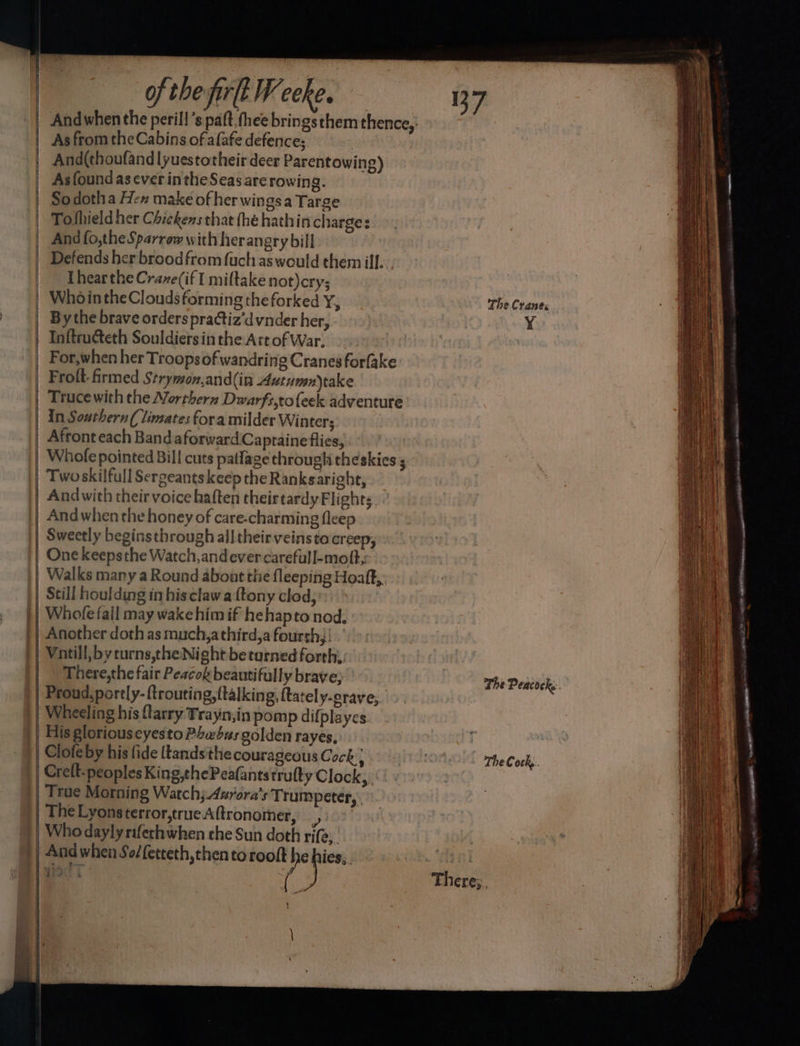 of the firſt Weeke. 137
And when the perill's paſt, ſhee brings them thence,
As from the Cabins of a ſafe defence;
And (thouſand lyues to their deer Parent owing)
As ſound as ever in the Seas are rowing.
So doth a Hen make of her wings a Targe
To ſhield her Chickens that ſhe hath in charge:
And ſo, the Sparrow with her angry bill
Defends her brood from ſuch as would them ill.
I hear the Crane (if I miſtake not) cry;
Who in the Clouds forming the forked Y,
The Crane.
By the brave orders practiz'd vnder her,
Y
Inſtructeth Souldiers in the Art of War.
For, when her Troops of wandring Cranes forſake
Froſt-firmed Strymon, and (in Autumn) take
Truce with the Northern Dwarfs, to ſeek adventure
In Southern Climates for a milder Winter;
Afront each Band a forward Captaine flies,
Whoſe pointed Bill cuts paſſage through the skies;
Two skilfull Sergeants keep the Ranks aright,
And with their voice haſten their tardy Flight;
And when the honey of care-charming ſleep
Sweetly begins through all their veins to creep,
One keeps the Watch, and ever carefull-moſt,
Walks many a Round about the ſleeping Hoaſt,
Still houlding in his claw a ſtony clod,
Whoſe fall may wake him if he hap to nod,
Another doth as much, a third, a fourth,
Vntill, by turns, the Night be turned forth,
There, the fair Peacok beautifully brave,
The Peacock.
Proud, portly-ſtrouting, ſtalking, ſtately-grave,
Wheeling his ſtarry Trayn, in pomp diſplayes
His glorious eyes to Phœbus golden rayes,
Cloſe by his ſide ſtands the courageous Cock,
The Cock.
Creſt-peoples King, the Peaſants truſty Clock,
True Morning Watch, Aurora's Trumpeter,
The Lyons terror, true Aſtronomer,
Who dayly riſeth when the Sun doth riſe,
And when Sol ſetteth, then to rooſt he hies,
There,